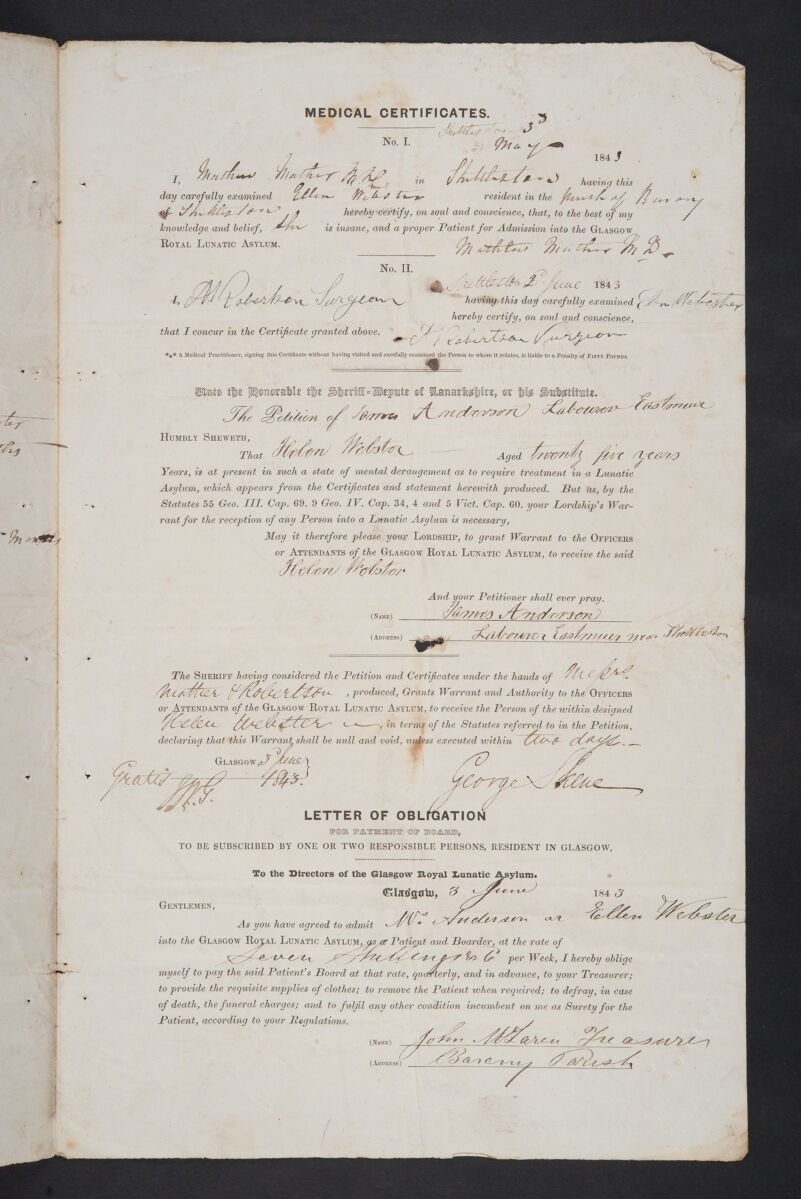 MEDICAL CERTIFICATES.
Shettleston 3d
No. I. May
1843
I, Mathew Mather M.D. in Shettleston having this
day carefully examined Ellen Webster resident in the parish of Barony
of Shettleston hereby certify, on soul and conscience, that, to the best of my
knowledge and belief, She is insane, and a proper Patient for Admission into the GLASGOW
ROYAL LUNATIC ASYLUM. Mather M.D.
No. II.
Shettleston 2d June 1843
I, Robertson Surgeon having this day carefully examined Ellen Webster
hereby certify, on soul and conscience,
that I concur in the Certificate granted above. Robertson Surgeon
*** A Medical Practitioner, signing this Certificate without having visited and carefully examined the Person to whom it relates, is liable to a Penalty of FIFTY POUNDS.
Unto the Honorable the Sheriff-Depute of Lanarkshire, or his Substitute.
The Petition of James Anderson Labourer Eastmuir
HUMBLY SHEWETH,
That Helen Webster Aged twenty five years
Years, is at present in such a state of mental derangement as to require treatment in a Lunatic
Asylum, which appears from the Certificates and statement herewith produced. But as, by the
Statutes 55 Geo. III. Cap. 69. 9 Geo. IV. Cap. 34, 4 and 5 Vict. Cap. 60. your Lordship's War-
rant for the reception of any Person into a Lunatic Asylum is necessary,
May it therefore please your LORDSHIP, to grant Warrant to the OFFICERS
OR ATTENDANTS of the GLASGOW ROYAL LUNATIC ASYLUM, to receive the said
Helen Webster
And your Petitioner shall ever pray.
(NAME) James Anderson
(ADDRESS) Labourer Eastmuir near Shettleston
The SHERIFF having considered the Petition and Certificates under the hands of Messrs.
Mather & Robertson, produced, Grants Warrant and Authority to the OFFICERS
or ATTENDANTS of the GLASGOW ROYAL LUNATIC ASYLUM, to receive the Person of the within designed
Helen Webster, in terms of the Statutes referred to in the Petition,
declaring that this Warrant shall be null and void, unless executed within two days.
GLASGOW, 3d June
Gratis 1843.
George Skene
LETTER OF OBLIGATION
FOR PAYMENT OF BOARD,
TO BE SUBSCRIBED BY ONE OR TWO RESPONSIBLE PERSONS, RESIDENT IN GLASGOW.
To the Directors of the Glasgow Royal Lunatic Asylum.
Glasgow, 3 June 1843
GENTLEMEN,
As you have agreed to admit Mrs. Anderson or Ellen Webster
into the GLASGOW ROYAL LUNATIC ASYLUM, as a Patient and Boarder, at the rate of
Seven Shillings & 6 per Week, I hereby oblige
myself to pay the said Patient's Board at that rate, quarterly, and in advance, to your Treasurer;
to provide the requisite supplies of clothes; to remove the Patient when required; to defray, in case
of death, the funeral charges; and to fulfil any other condition incumbent on me as Surety for the
Patient, according to your Regulations.
(NAME) John McLaren Treasurer
(ADDRESS) Barony Parish